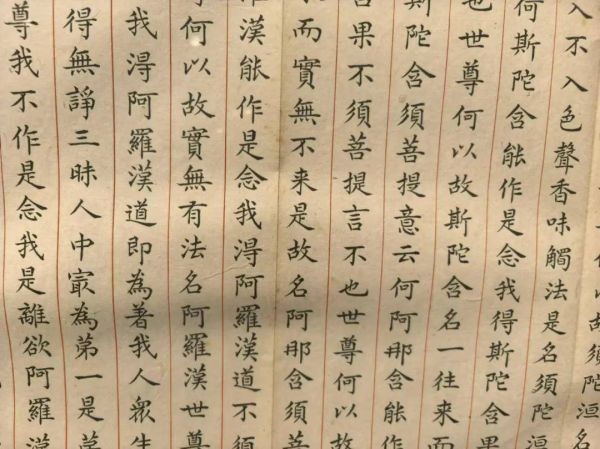 以故須陀洹名
入不入色聲香味觸法是名須陀洹
何斯陀含能作是念我得斯陀含果
也世尊何以故斯陀含名一往来而
斯陀含須菩提意云何阿那含能作
含果不須菩提言不也世尊何以故
而實無不来是故名阿那含須菩
羅漢能作是念我淂阿羅漢道不須
何以故實無有法名阿羅漢世尊
我淂阿羅漢道即為著我人衆生
得無諍三昧人中冣為第一是
尊我不作是念我是離欲阿羅漢